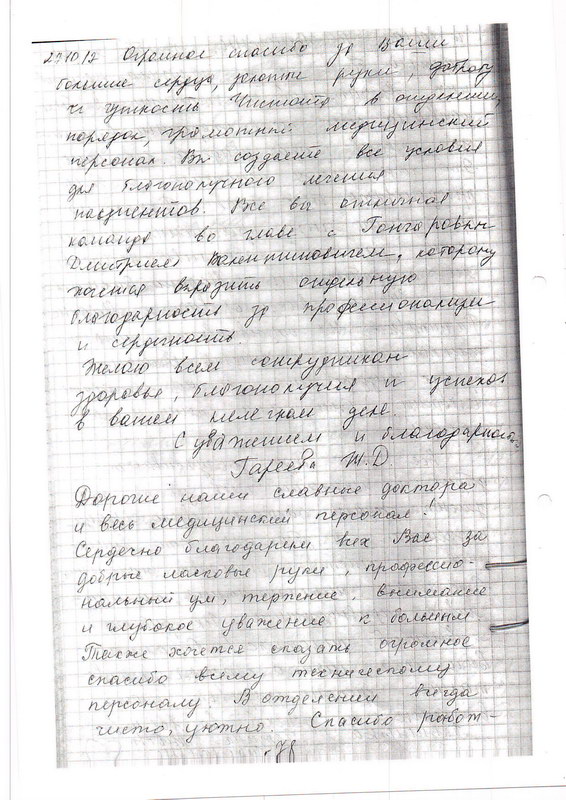 291012 Огромное спасибо за Ваши
большие сердца, золотые руки, доброту
и чуткость. Чистота в отделении,
порядок, грамотный медицинский
персонал. Вы создаете все условия
для благополучного лечения
пациентов. Все вы отличная
команда во главе с
Дмитрием Валентиновичем, которому
хочется выразить отдельную
благодарность за профессионализм
и сердечность.
Желаю всем сотрудникам
здоровья, благополучия и успехов
в вашем нелегком деле.
С уважением и благодарностью
Гареева Ж.Д
Дорогие наши славные доктора
и весь медицинский персонал!
Сердечно благодарим всех Вас за
добрые ласковые руки, профессио-
нальный ум, терпение, внимание
и глубокое уважение к больным.
Также хочется сказать огромное
спасибо всему техническому
персоналу. В отделении всегда
чисто, уютно. Спасибо работ-